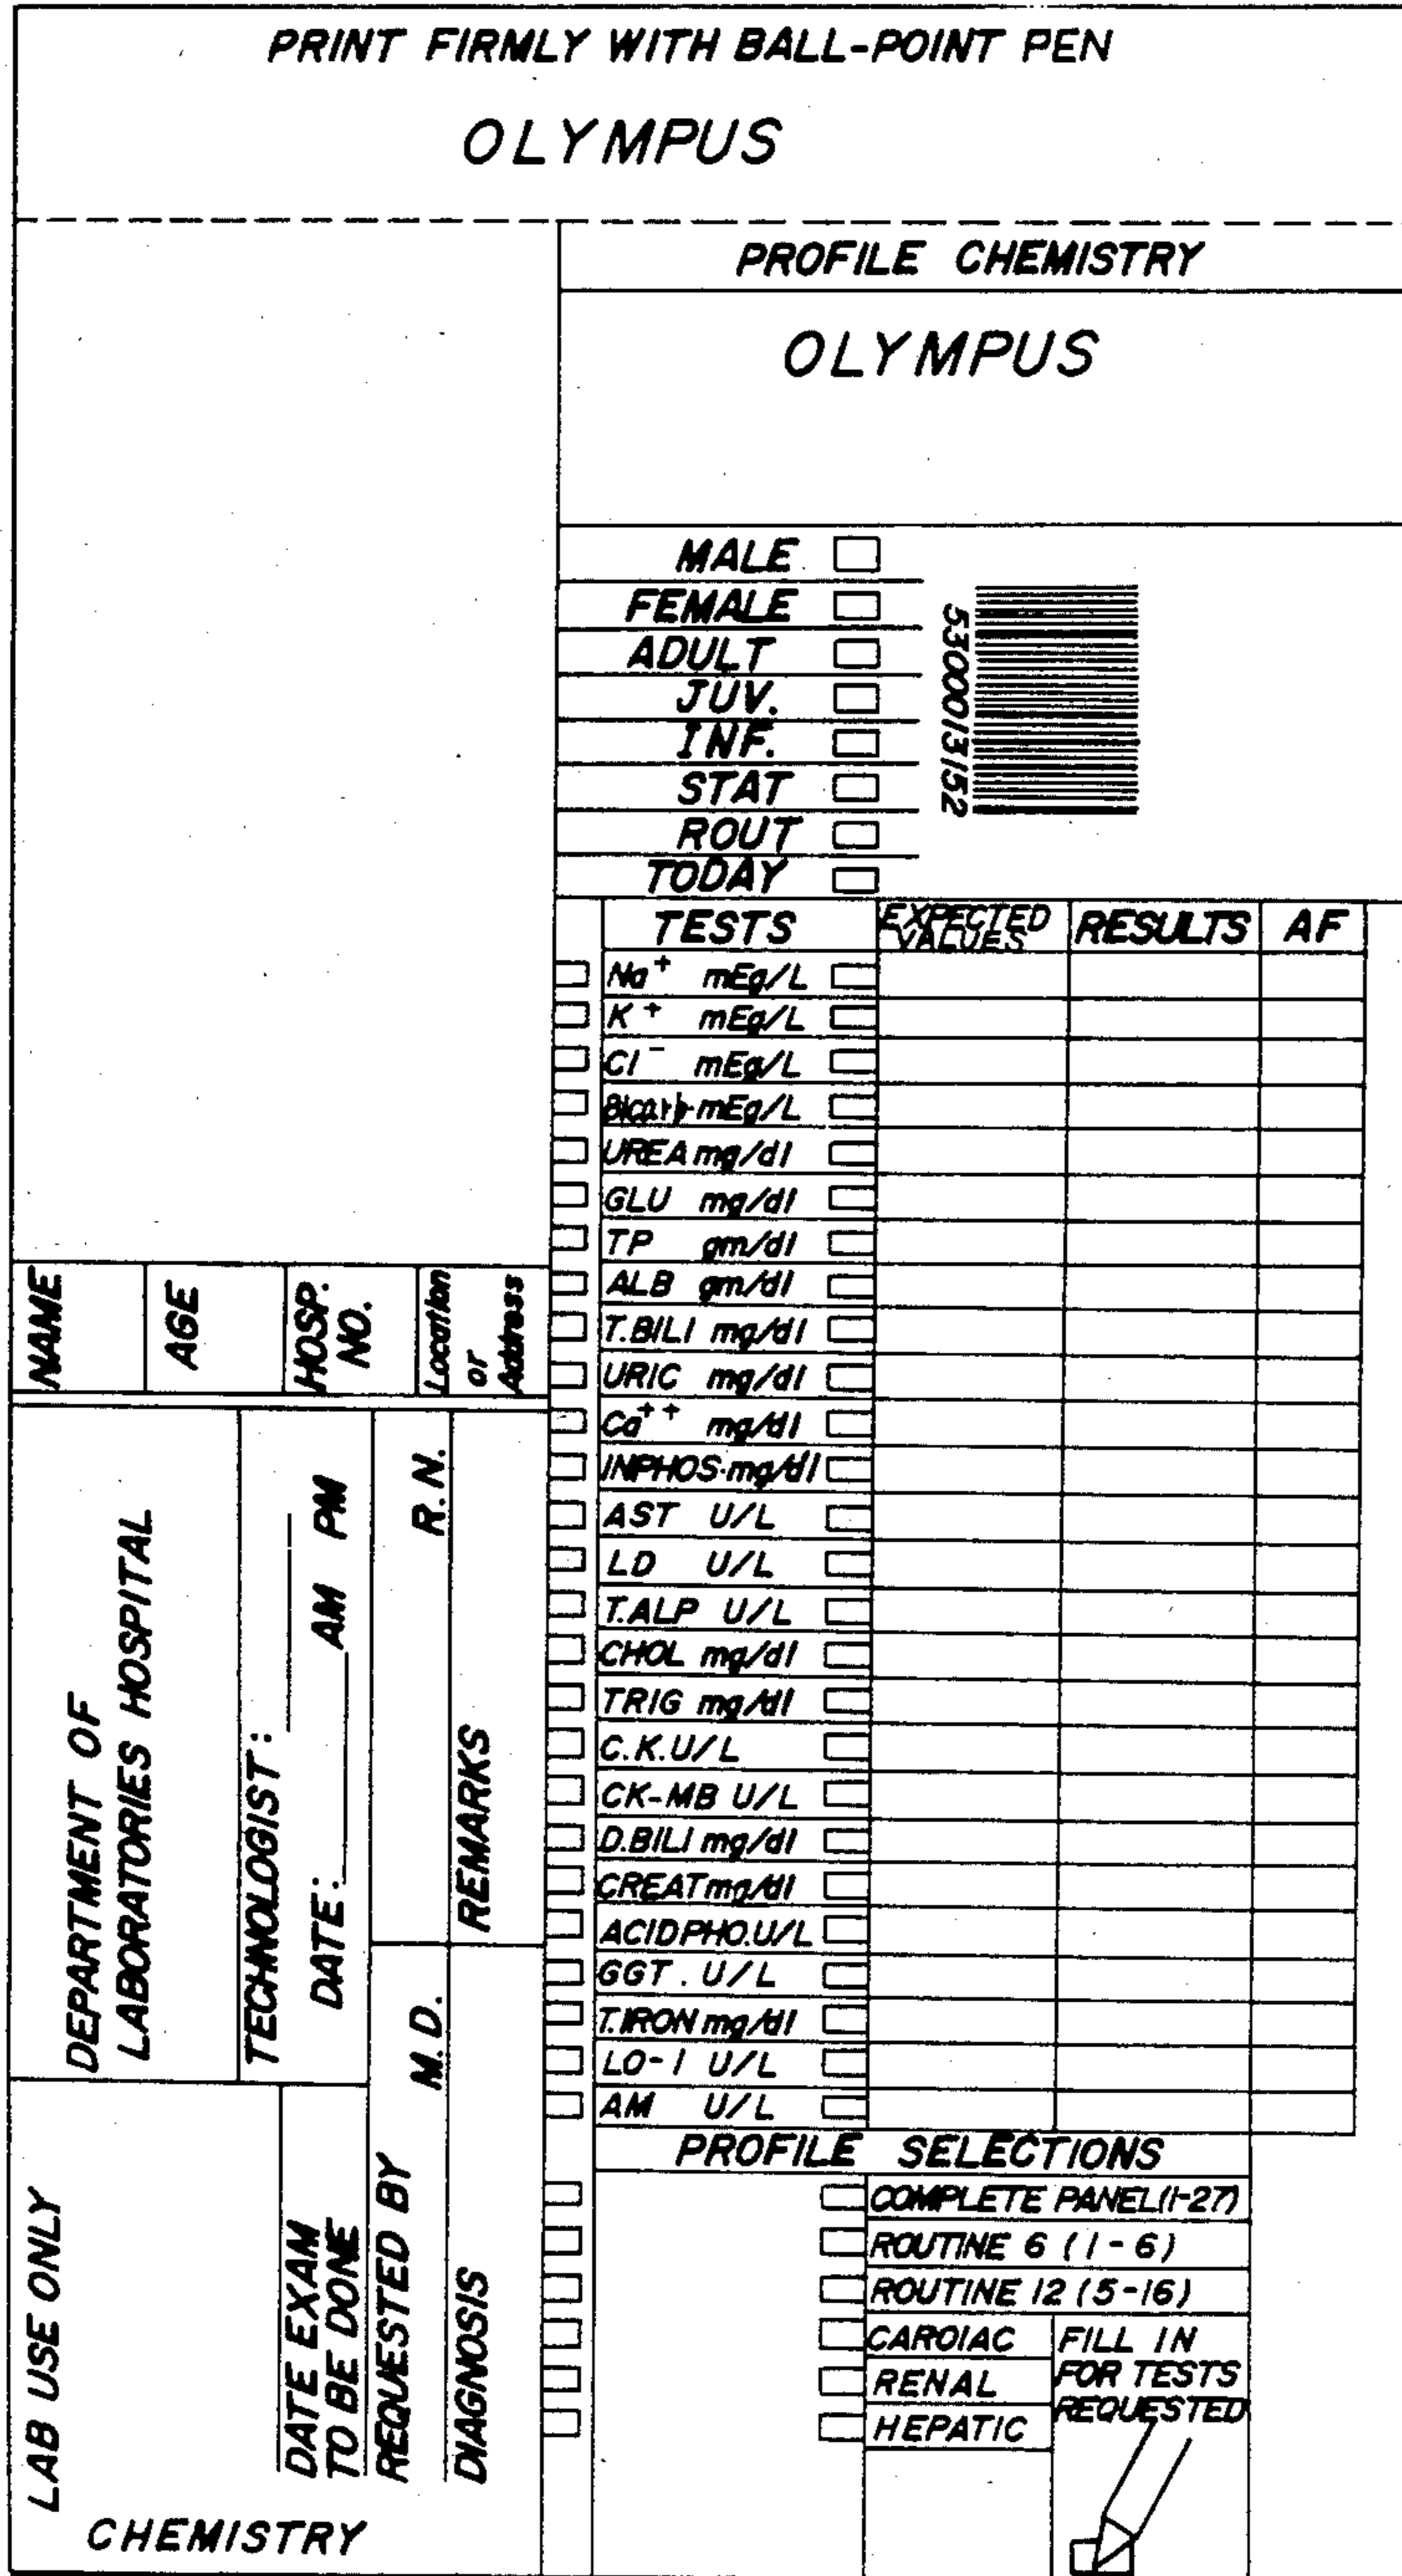 PRINT FIRMLY WITH BALL-POINT PEN
OLYMPUS
PROFILE CHEMISTRY
OLYMPUS
MALE
FEMALE
ADULT
JUV.
INF.
STAT
ROUT
TODAY
5300013152
TESTS EXPECTED VALUES RESULTS AF
Na+ mEg/L
K+ mEg/L
Cl- mEg/L
Bicarb mEg/L
UREA mg/dl
GLU mg/dl
TP gm/dl
ALB gm/dl
T.BILI mg/dl
URIC mg/dl
Ca++ mg/dl
INPHOS.mg/dl
AST U/L
LD U/L
T.ALP U/L
CHOL mg/dl
TRIG mg/dl
C.K.U/L
CK-MB U/L
D.BILI mg/dl
CREAT mg/dl
ACID PHO.U/L
GGT. U/L
T.IRON mg/dl
LO-1 U/L
AM U/L
PROFILE SELECTIONS
COMPLETE PANEL(1-27)
ROUTINE 6 (1-6)
ROUTINE 12 (5-16)
CAROIAC
RENAL
HEPATIC
FILL IN
FOR TESTS
REQUESTED
NAME
AGE
HOSP.
NO.
Location
or
Address
DEPARTMENT OF
LABORATORIES HOSPITAL
TECHNOLOGIST:
DATE: AM PM
R.N.
REMARKS
LAB USE ONLY
DATE EXAM
TO BE DONE
REQUESTED BY M.D.
DIAGNOSIS
CHEMISTRY